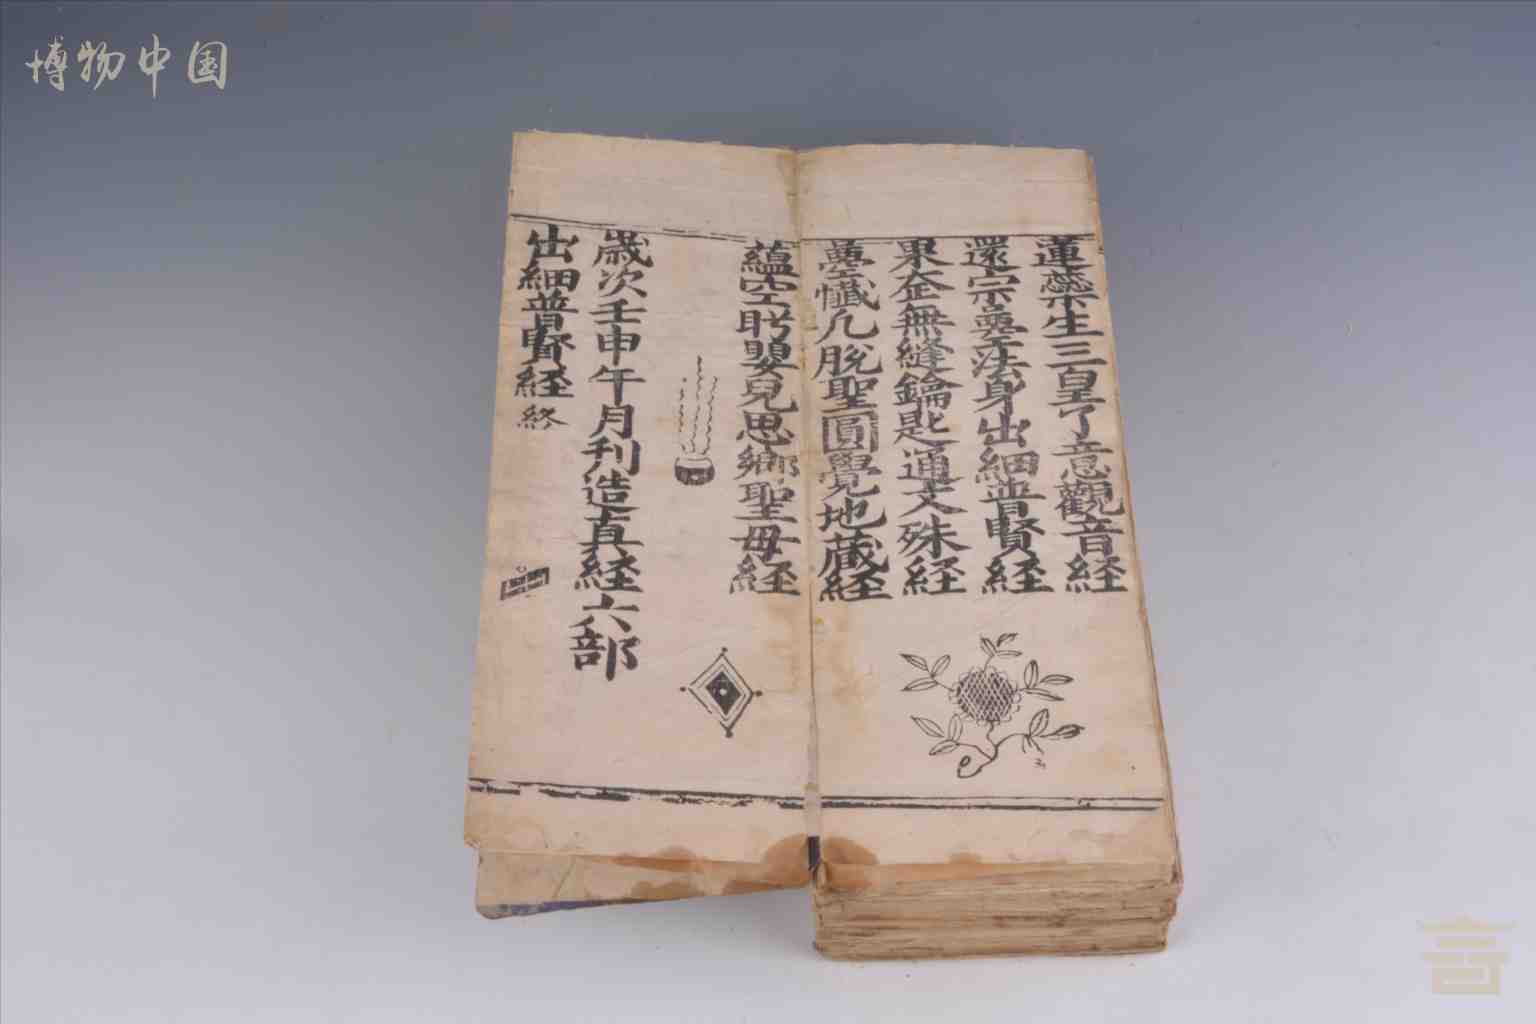 博物中国
蓮蘂生三皇了意觀音経
還宗真空法身出細普賢経
果企無縫鑰匙通文殊経
懺几脫聖圓覺地蔵経
蘊空聆嬰兒思鄉聖毋経
歳次壬申午月刋造真経六部
出細普賢経終